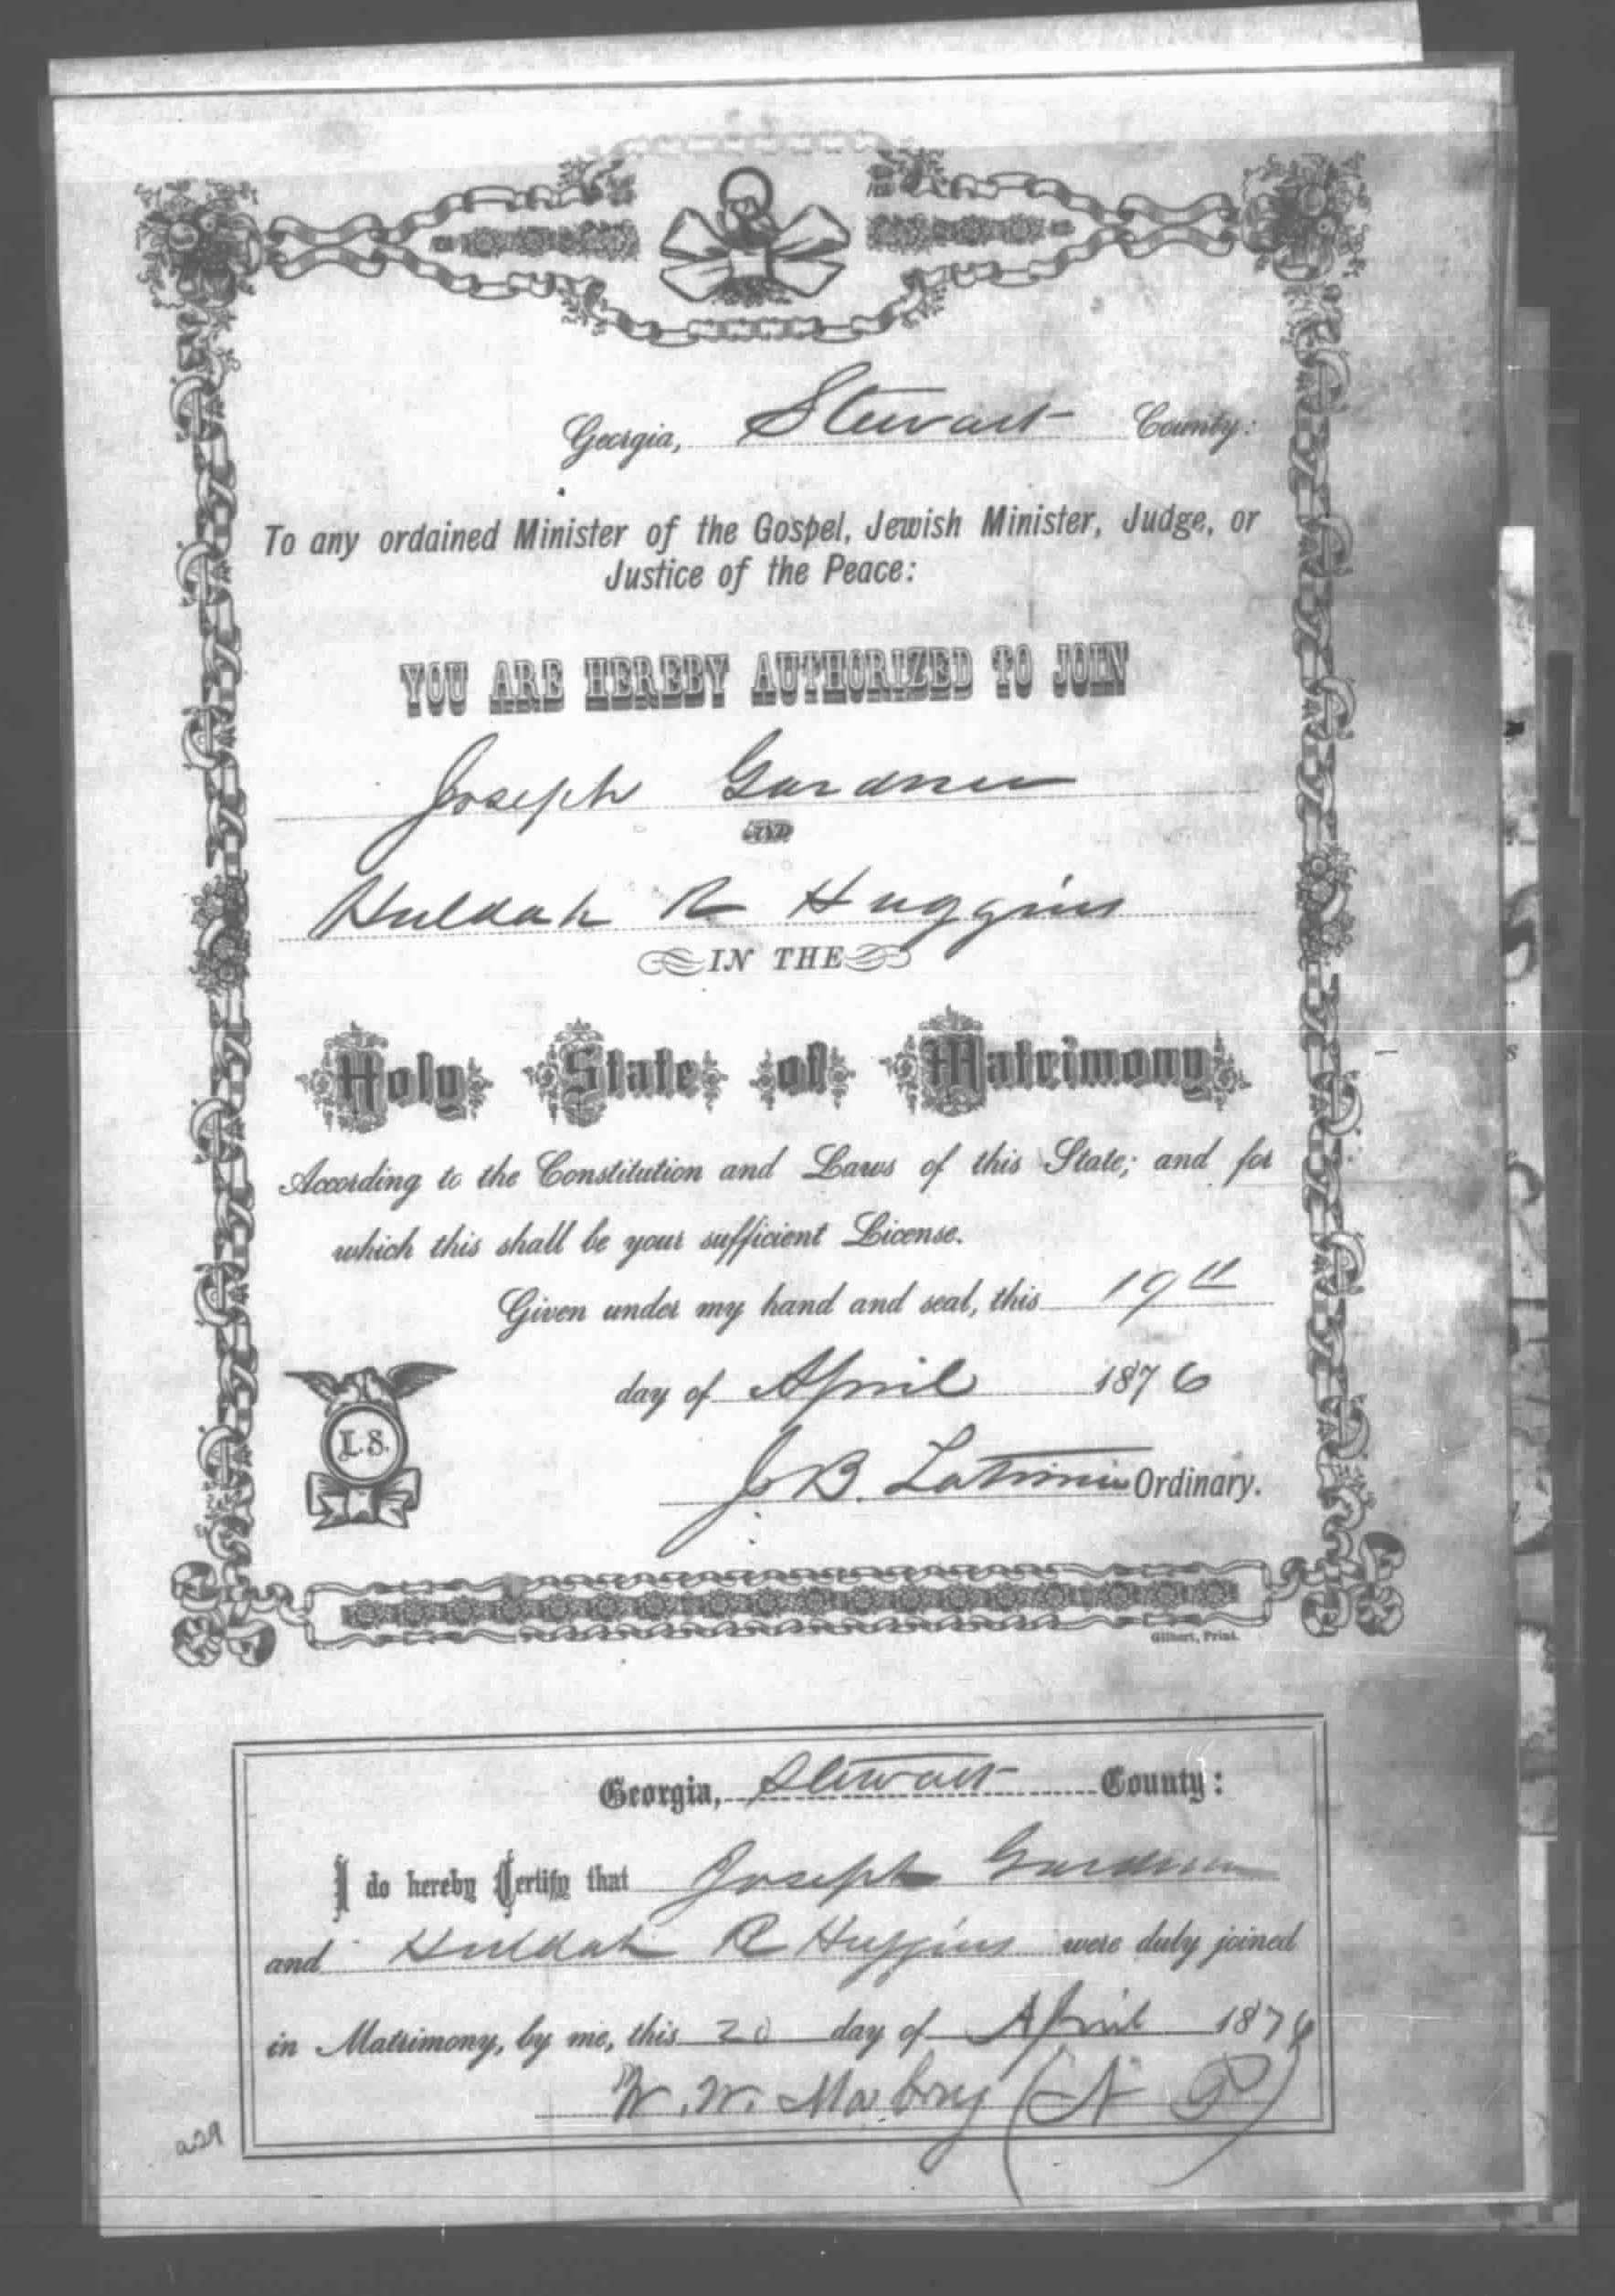 Georgia, Stewart County:
To any ordained Minister of the Gospel, Jewish Minister, Judge, or
Justice of the Peace:
YOU ARE HEREBY AUTHORIZED TO JOIN
Joseph Gardner
AND
Huldah R Huggins
IN THE
Holy State of Matrimony
According to the Constitution and Laws of this State; and for
which this shall be your sufficient License.
Given under my hand and seal, this 19th
day of April 1876
L.S.
J B. Latimer Ordinary.
Gilbert, Print.
Georgia, Stewart County:
I do hereby Certify that Joseph Gardner
and Huldah R Huggins were duly joined
in Matrimony, by me, this 20 day of April 1876
W. W. Mabry (N P)
229